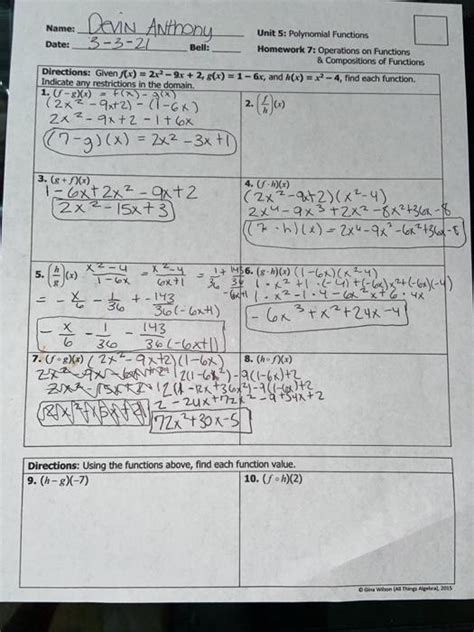 Name: Devin Anthony
Date: 3-3-21 Bell:
Unit 5: Polynomial Functions
Homework 7: Operations on Functions
& Compositions of Functions
Directions: Given f(x) = 2x² – 9x + 2, g(x) = 1 – 6x, and h(x) = x² – 4, find each function.
Indicate any restrictions in the domain.
1. (f – g)(x) = f(x) - g(x)
(2x² - 9x+2) - (1-6x)
2x² - 9x + 2 - 1 + 6x
(7-g)(x) = 2x² - 3x+1
2. (f/h)(x)
3. (g + f)(x)
1 - 6x + 2x² - 9x + 2
2x² - 15x + 3
4. (f · h)(x)
(2x² - 9x+2)(x²-4)
2x⁴ - 9x³ + 2x² - 8x² + 36x - 8
(7·h)(x) = 2x⁴ - 9x³ - 6x² + 36x - 8
5. (h/g)(x) x²-4/1-6x = x²-4/6x+1 = 1/36 + 143/36/-6x+1
= - x/6 - 1/36 + -143/36(-6x+1)
- x/6 - 1/36 - 143/36(-6x+1)
6. (g · h)(x) (1-6x)(x²-4)
1·x² + 1·(-4) + (-6x)x² + (-6x)(-4)
1·x² - 1·4 - 6x²x + 6·4x
-6x³ + x² + 24x - 4
7. (f ∘ g)(x) (2x² - 9x+2)(1-6x)
2(1-6x²) - 9(1-6x)+2
2(1-12x+36x²) - 9(1-6x)+2
2 - 24x + 72x² - 9 + 54x + 2
72x² + 30x - 5
8. (h ∘ f)(x)
Directions: Using the functions above, find each function value.
9. (h – g)(–7)
10. (f ∘ h)(2)
© Gina Wilson (All Things Algebra), 2015